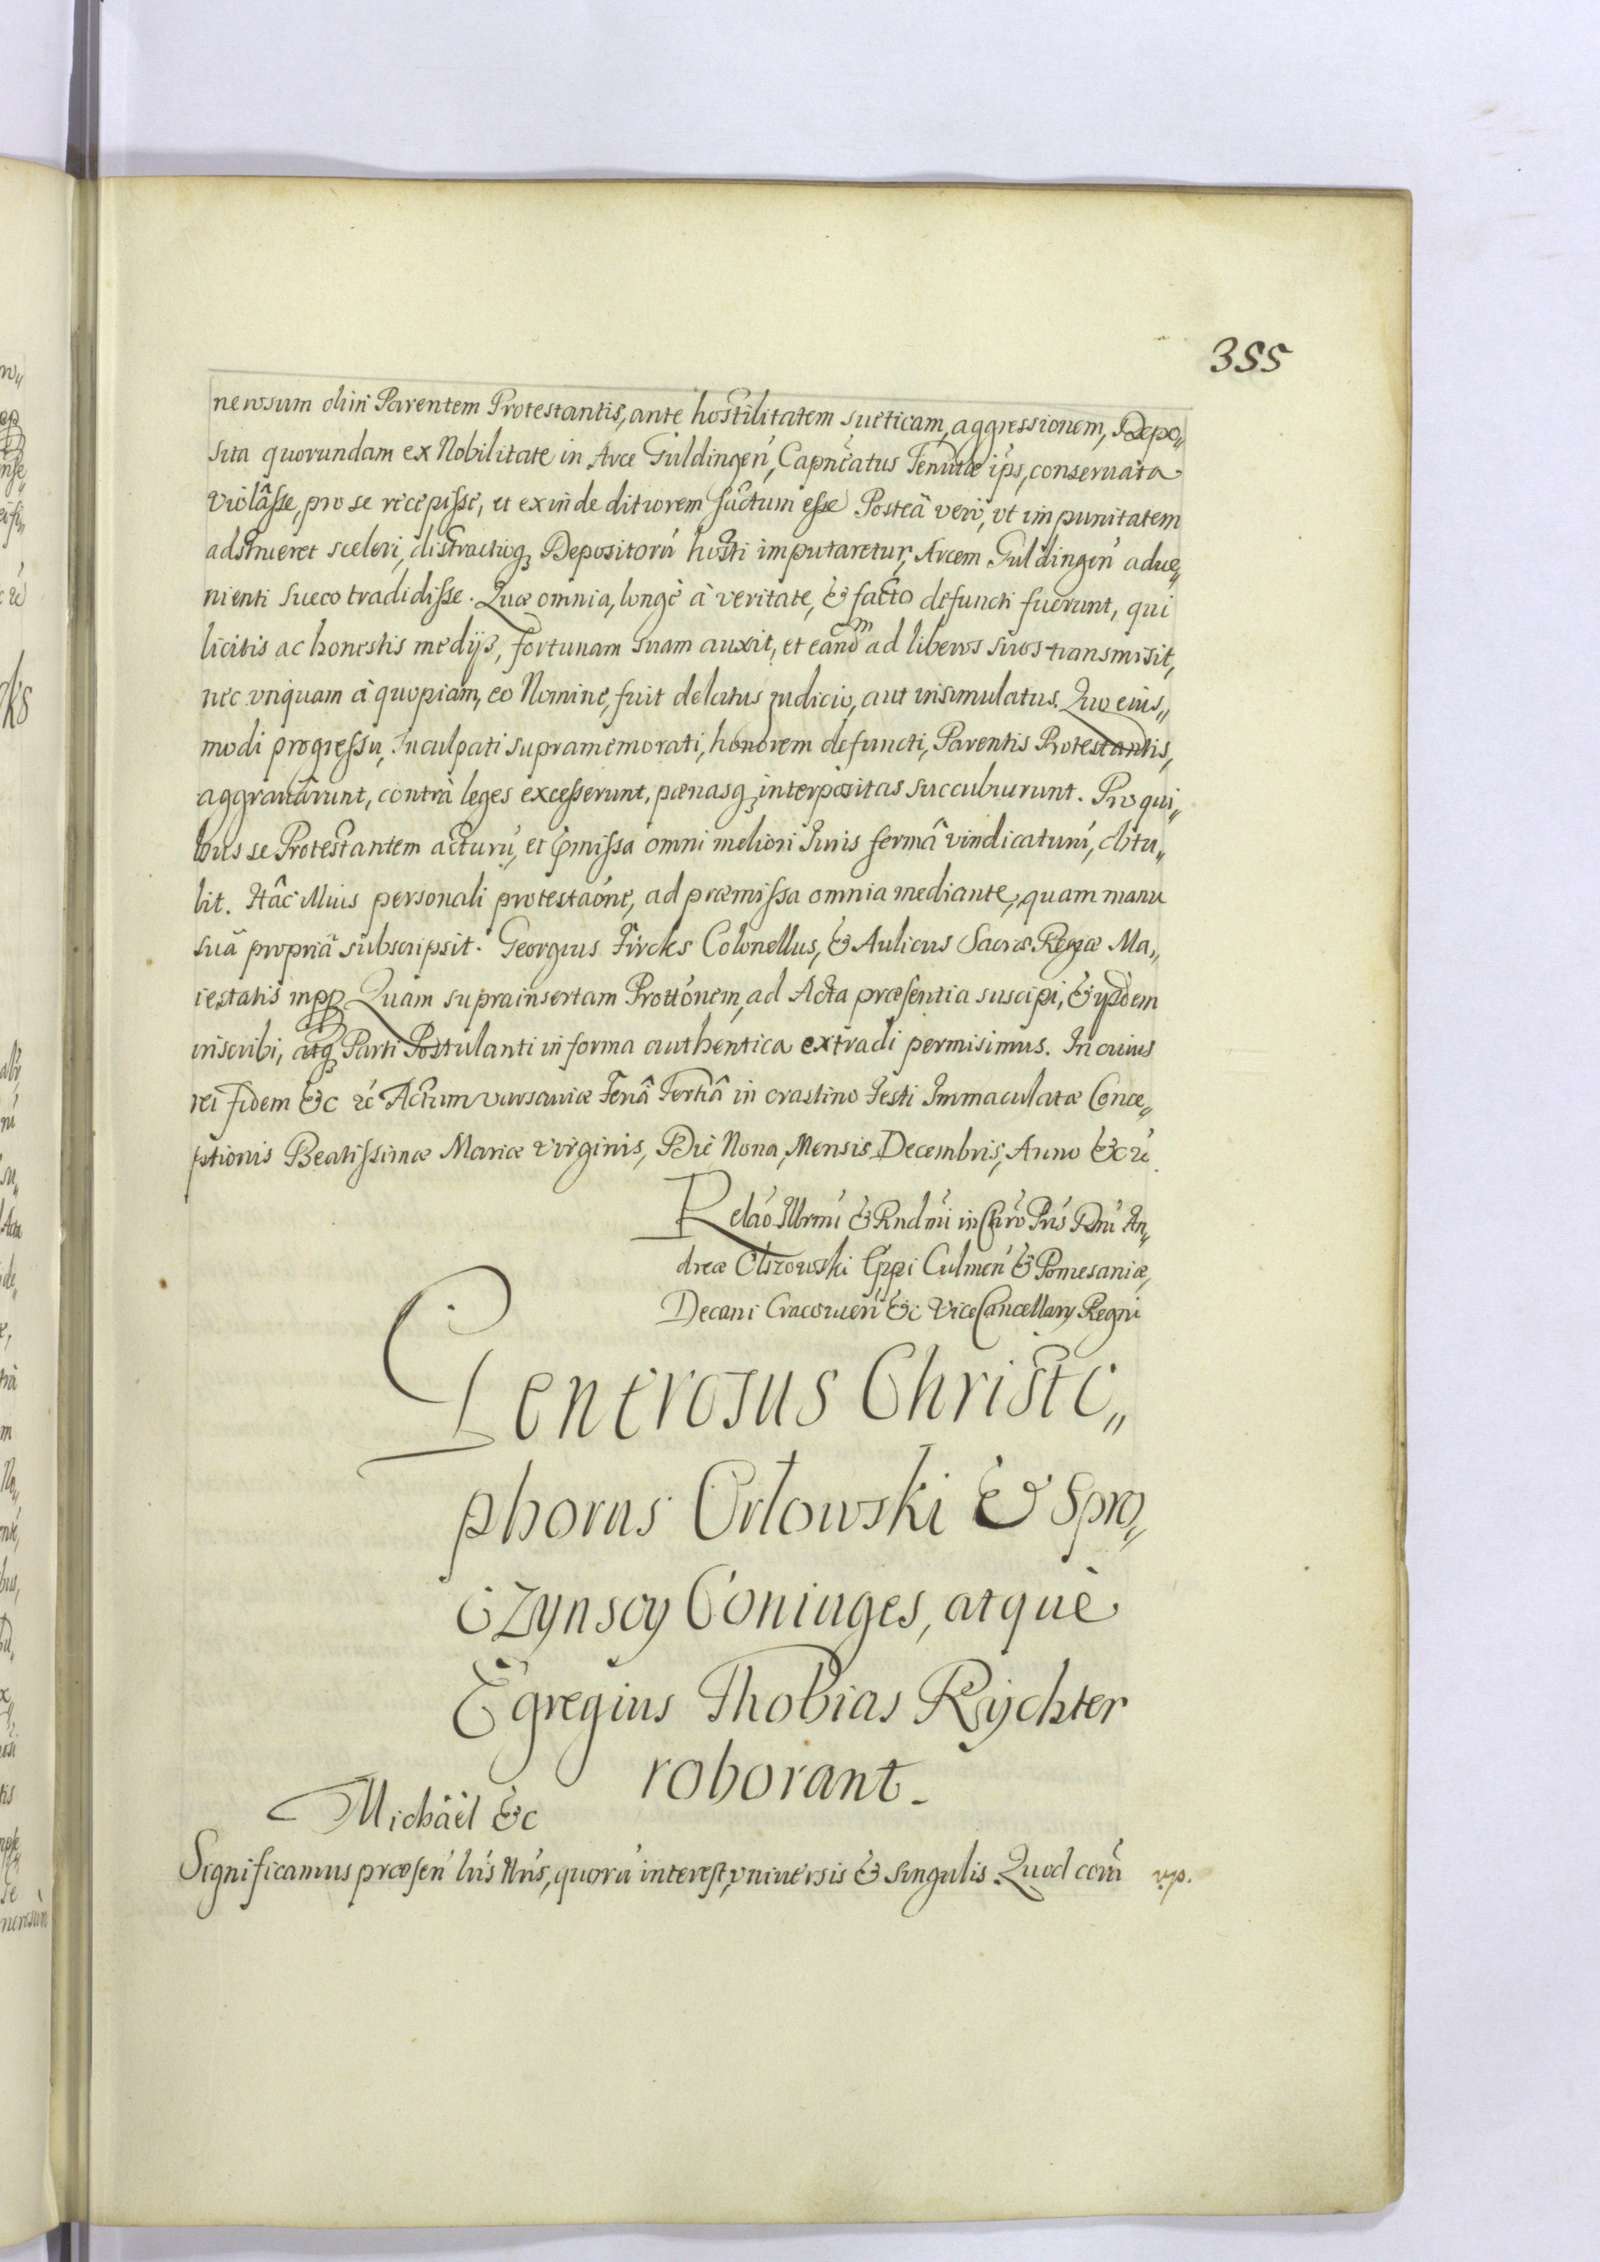 355
nerosum olim Parentem Protestantis, ante hostilitatem sueticam, aggressionem, Depo„
sita quorundam ex Nobilitate in Arce Guldingeń, Capnẽatus Tenutæ ips, conseruata
violâsse, pro se recepisse, et exinde ditiorem factum esse Posteà verò, vt impunitatem
adstrueret sceleri, distractioq; Depositorú hosti imputaretur, Arcem Guldingeń adue„
nienti Sueco tradidisse. Quæ omnia, longè à veritate, & facto defuncti fuerunt, qui
licitis ac honestis medijs, fortunam suam auxit, et eandm ad liberos suos transmisit,
nec vnquam à quopiam, eo Nomine, fuit delatus iudicio, aut insimulatus. Quo eius„
modi progressu, Inculpati supramemorati, honorem defuncti, Parentis Protestantis,
aggrauârunt, contrà leges excesserunt, pænasq; interpositas succubuerunt. Pro qui„
bus se Protestantem acturú, et omissa omni meliori Iuris formâ vindicaturú, obtu„
lit. Hâc illius personali protestaóne, ad præmissa omnia mediante, quam manu
suâ propriâ subscripsit. Georgius Fircks Colonellus, & Aulicus Sacræ Regiæ Ma„
iestatis mpp Quam suprainsertam Prottónem, ad Acta præsentia suscipi, & ysdem
inscribi, atq; Parti Postulanti in forma authentica extradi permisimus. In cuius
rei fidem &c rć Actum varsauiæ Feriâ Tertiâ in crastino Festi Immaculatæ Conce„
ptionis Beatissimæ Mariæ Virginis, Die Nona, Mensis Decembris, Anno &c rć
Relaó Illrmi & Rndmi in Chró Pris Dni An„
dreæ Olszowski Eppi Culmeń & Pomesaniæ,
Decani Cracouień &c ViceCancellary Regni
Generosus Christo„
phorus Orłowski & Spro„
czynscy Coniuges, atquè
Egregius Thobias Rÿchter
roborant.
Michäel &c
Significamus præseń lris Nris, quorú interest, vniuersis & singulis. Quod corá